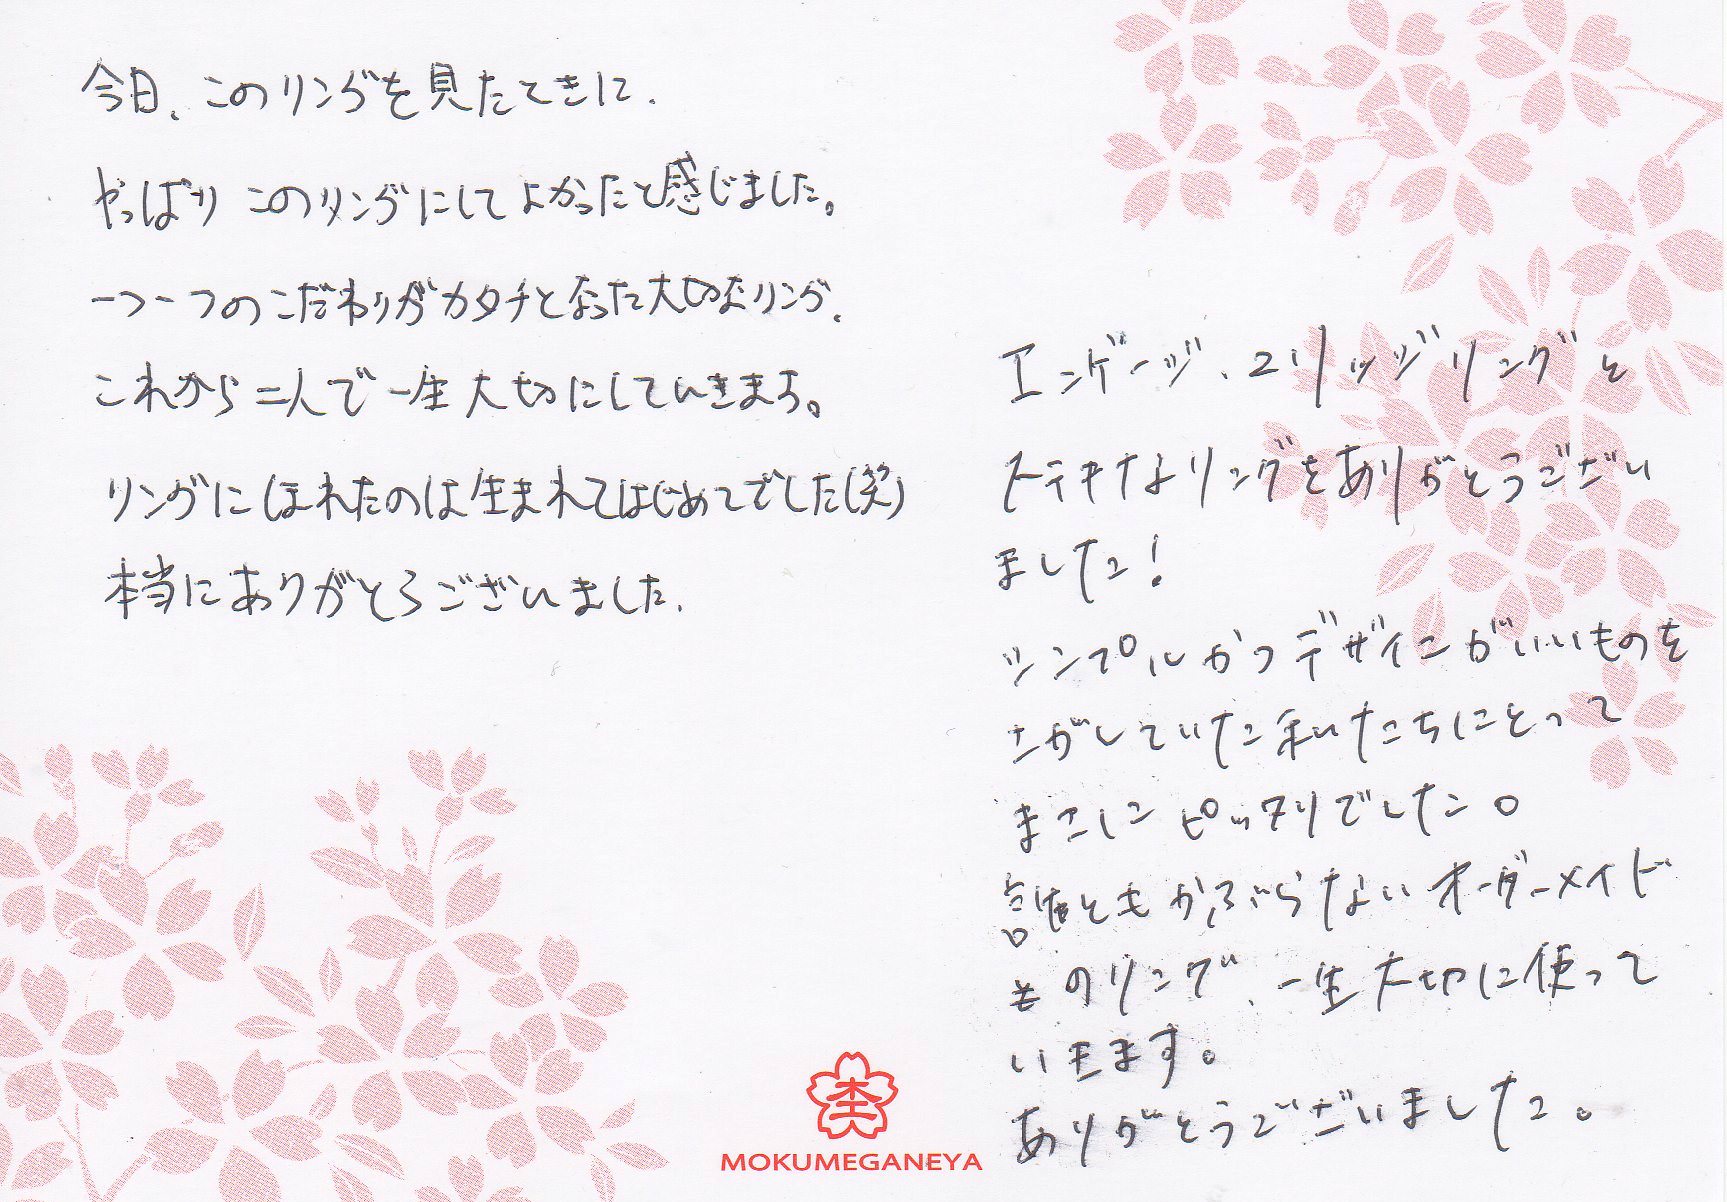 今日、このリングを見たときに、
やっぱり このリングにして よかったと感じました。
一つ一つの こだわりが カタチとなった 大切なリング、
これから 二人で 一生 大切にしていきます。
リングに ほれたのは 生まれてはじめてでした(笑)
本当に ありがとうございました。
エンゲージ、マリッジリングと
ステキなリングをありがとうござい
ました!
シンプルかつデザインがいいものを
さがしていた私たちにとって
まさにピッタリでした。
誰ともかぶらないオーダーメイド
のリング、一生大切に使って
いきます。
ありがとうございました。
杢
MOKUMEGANEYA